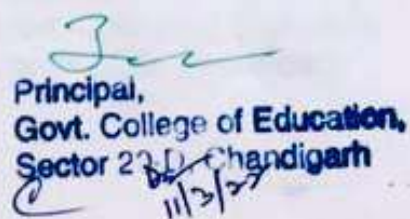 Principal,
Govt. College of Education,
Sector 20 D, Chandigarh
11/3/27